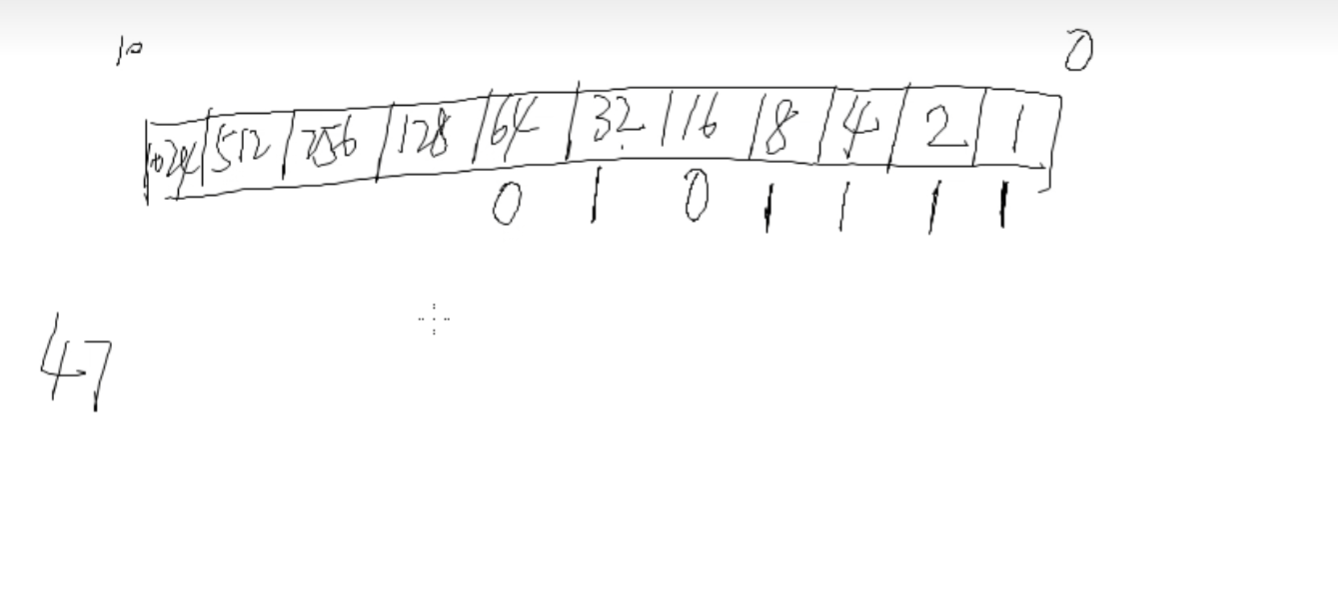 10 0
1024 512 256 128 64 32 16 8 4 2 1
0 1 0 1 1 1 1
47